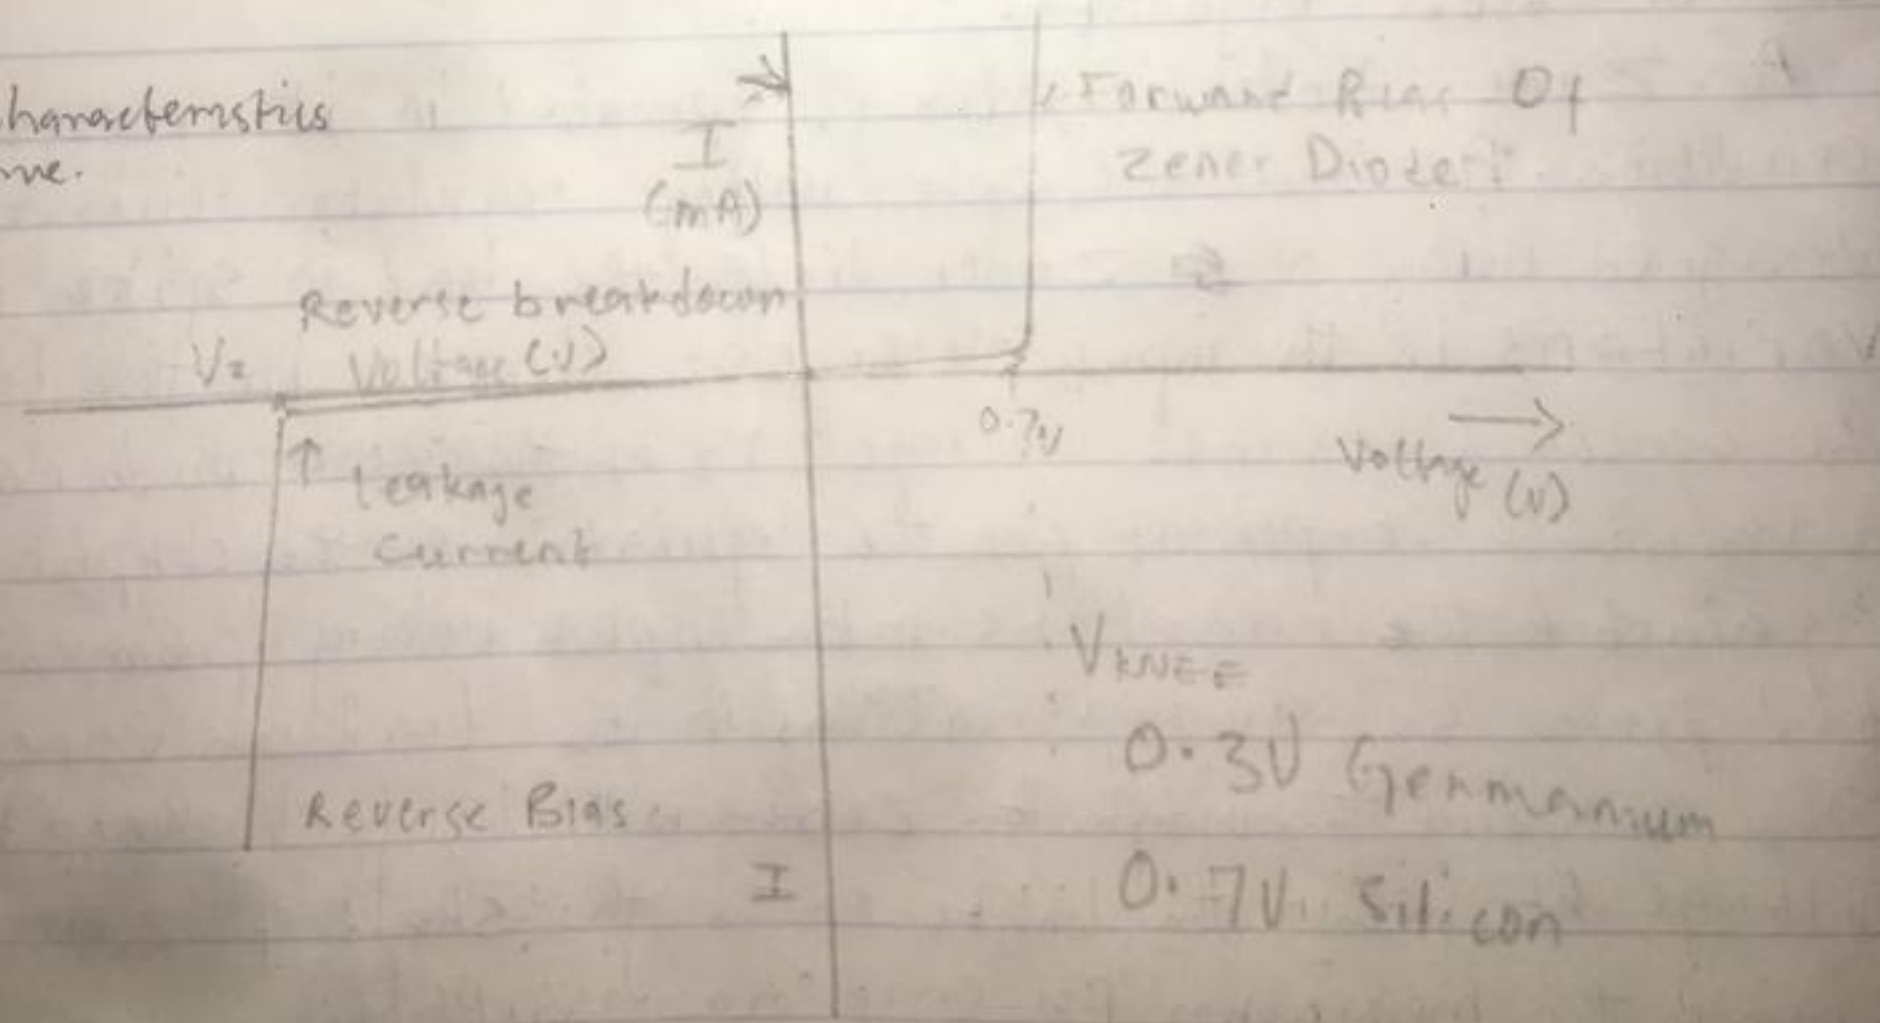 haracteristics
me.
I
(mA)
Forward Bias Of
Zener Diode
Reverse breakdown
Vz Voltage (V)
0.7V
Voltage (V)
Leakage
current
VKNEE
0.3V Germanium
Reverse Bias
I
0.7V Silicon